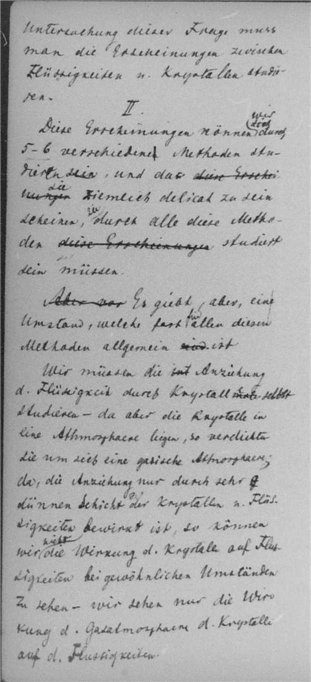 Untersuchung dieser Frage muss
man die Erscheinungen zwischen
Flüssigkeiten u. Krystallen studie-
ren.
II.
Diese Erscheinungen können wir durch
5-6 verschiedene Methoden stu-
dieren sein, und da diese Erschei
nungen sie ziemlich delicat zu sein
scheinen, zu durch alle diese Metho-
den diese Erscheinungen studiert
sein müssen.
Aber vor Es giebt, aber, ein
Umstand, welche fast allen diesen
Methoden allgemein ist
Wir müssen die Anziehung
d. Flüssigkeit durch Krystall selbst
studieren – da aber die Krystalle in
eine Athmosphaere liegen, so verdichten
sie um sich eine gasische Atmosphaere;
da, die Anziehung nur durch sehr
dünnen Schicht der Krystallen u. Flüs-
sigkeiten bewirkt ist, so können
wir nicht die Wirkung d. Krystalle auf Flüs-
sigkeiten bei gewöhnlichen Umständen
zu sehen – wir sehen nur die Wir
kung d. Gasatmosphaere d. Krystalle
auf d. Flüssigkeiten.